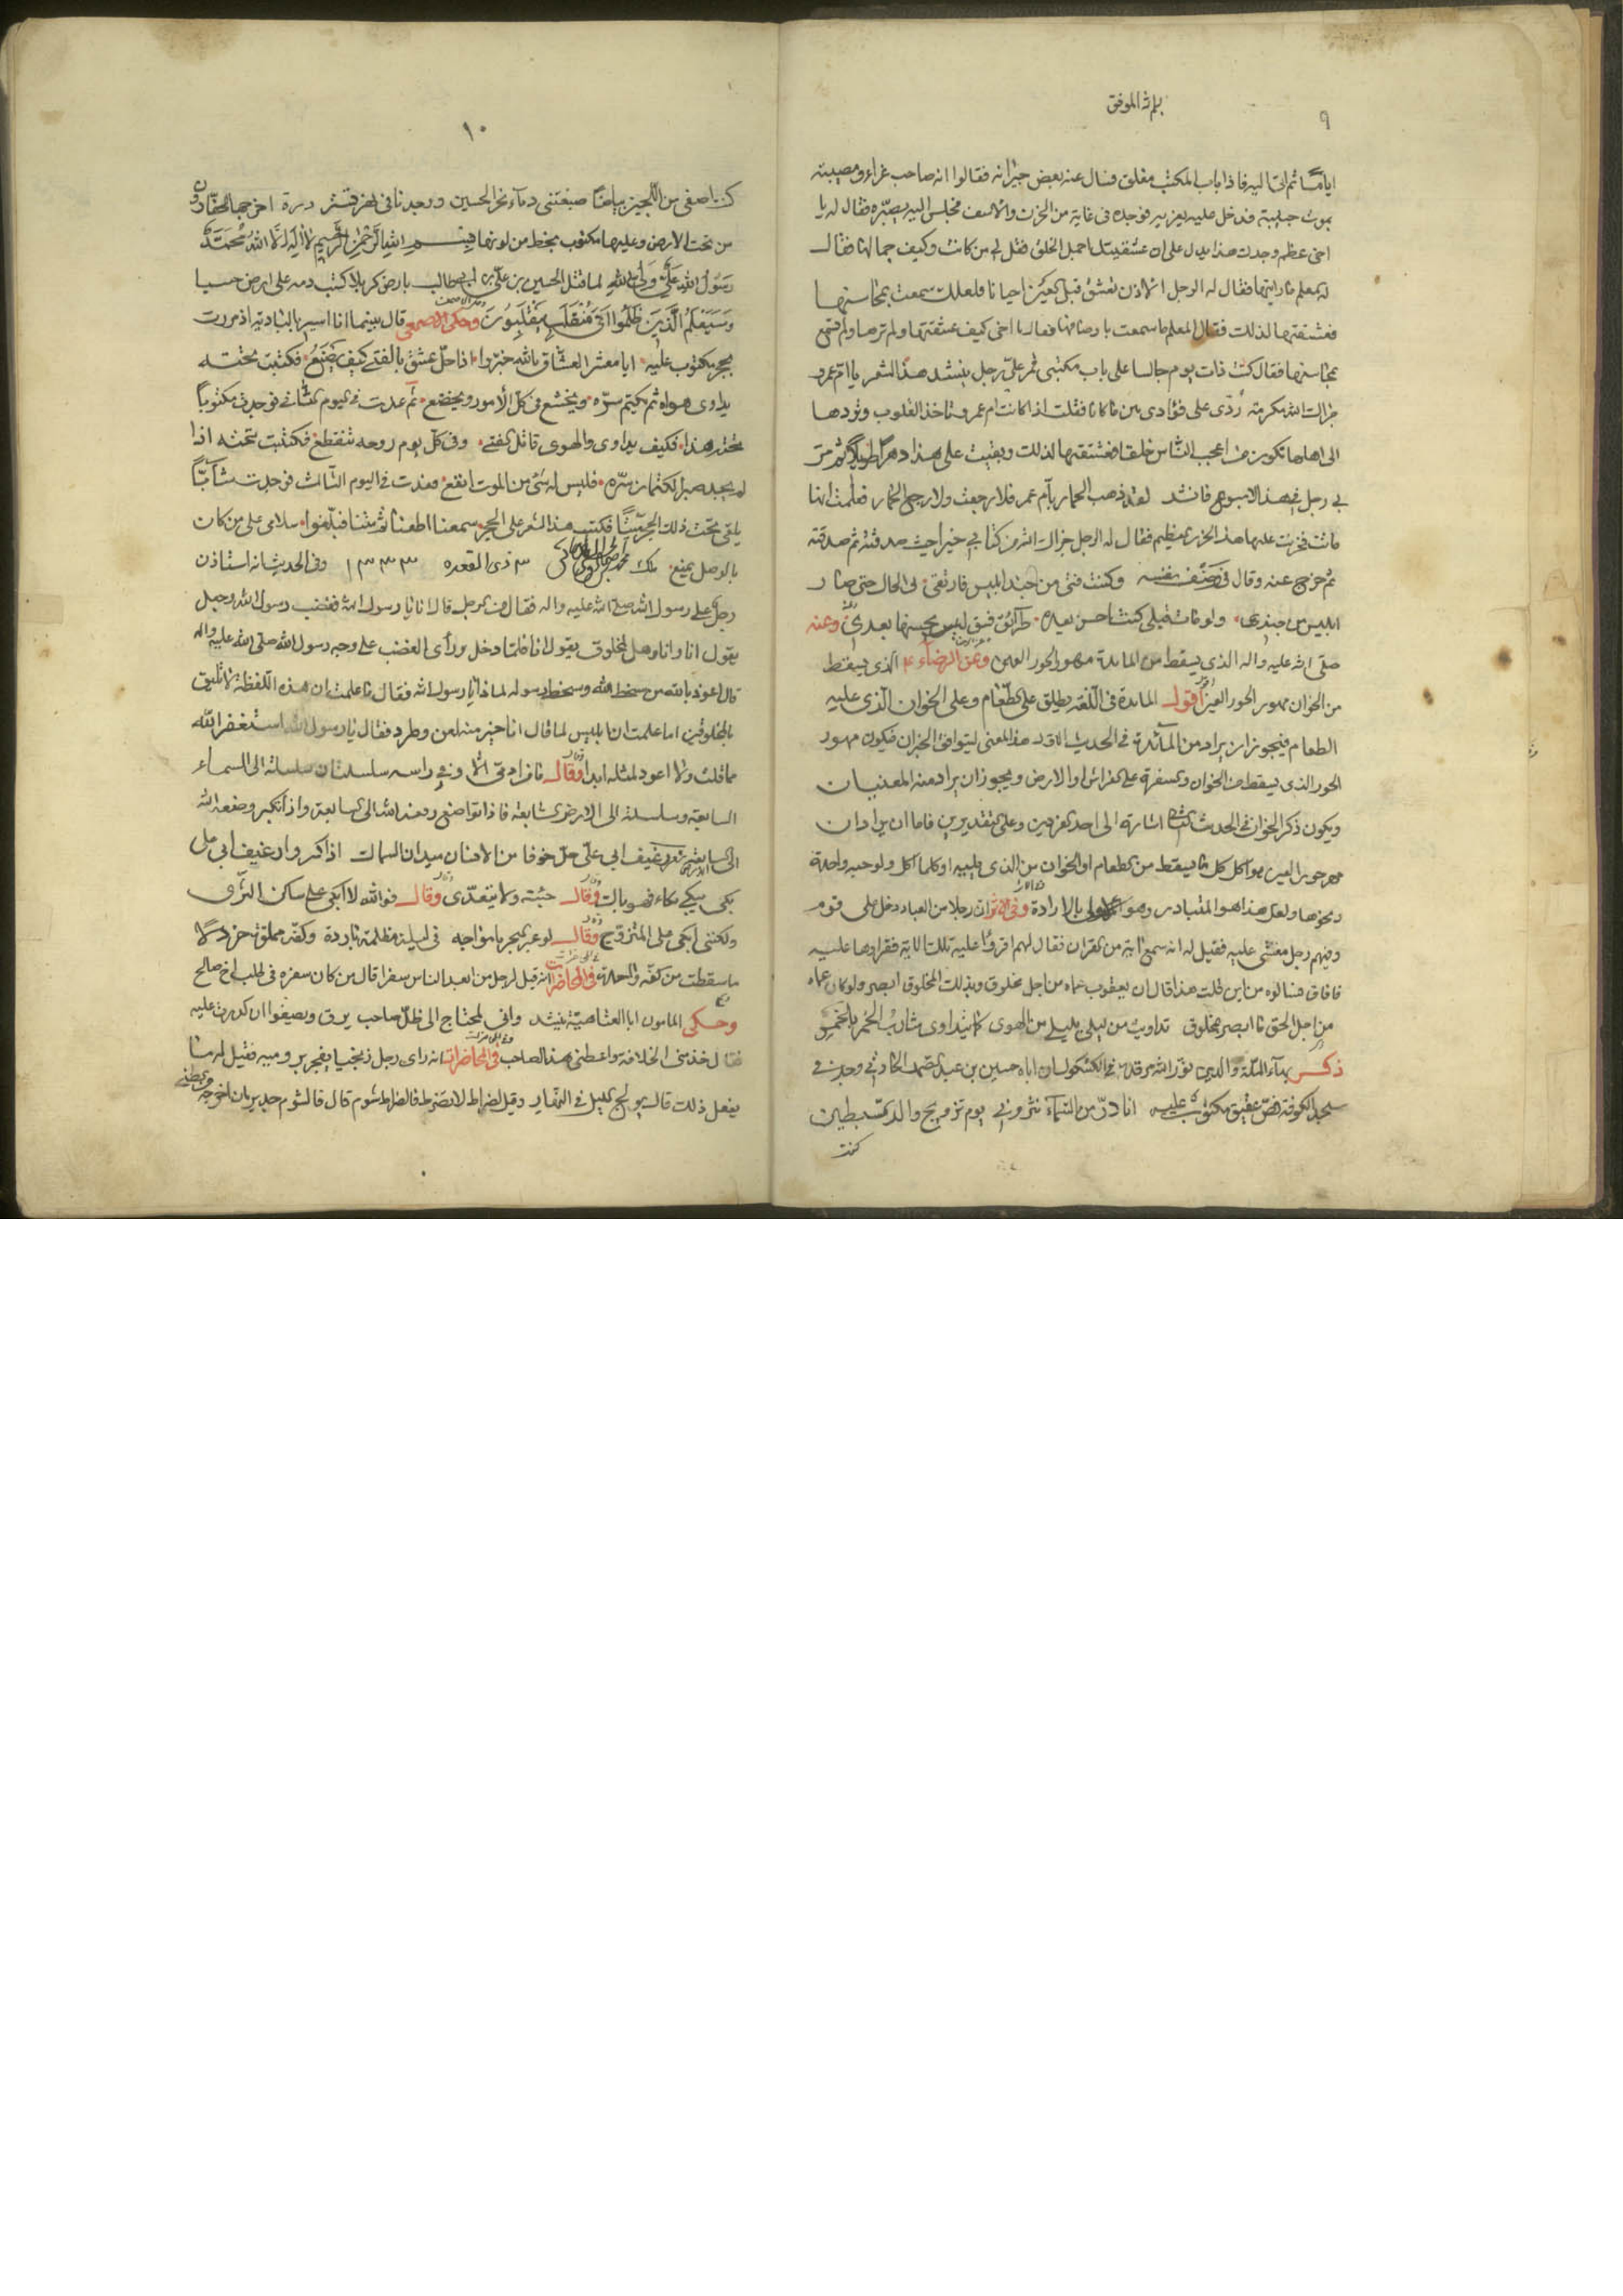 ٩
ايامًا ثم اتى اليه فاذا باب المكتب مغلق فسال عنه بعض جيرانه فقالوا انه صاحب عزاء ومصيبته
بموت حبيبته فدخل عليه يعزيه فوجده فى غاية من الحزن والاسف فجلس اليه يصبّره فقال له يا
اخى عظم وجدك هذا يدل على ان عشقيتك اجمل الخلق فقل لى من كانت وكيف جمالها فقال
له المعلم ما رايتها فقال له الرجل الاذن تعشق قبل العين احيانا فلعلك سمعت بمحاسنها
فعشقتها لذلك فقال المعلم ما سمعت باوصافها فقال يا اخى كيف عشقتها ولم ترها ولم تسمع
بمحاسنها فقال كنت ذات يوم جالسا على باب مكتبى فمر علىّ رجل ينشد هذا الشعر يا ام عمرو
جزاك الله مكرمة ردّى على فؤادى اين ما كانا فقلت اذا كانت ام عمرو تاخذ القلوب وتردها
الى اهلها تكون من اعجب الناس خلقا فعشقتها لذلك وبقيت على هذا دهرًا طويلًا ثم مر
بى رجل فى هذا الاسبوع فانشد لقد ذهب الحمار بام عمرو فلا رجعت ولا رجع الحمار فعلمت انها
ماتت فحزنت عليها هذا الحزن العظيم فقال له الرجل جزاك الله من كتابى خيرا حيث صدقته ثم صدقته
ثم خرج عنه وقال فى وصف نفسه وكنت فتى من جند ابليس فارتقى بى الحال حتى صار
ابليس من جندى ولو مات قبلى كنت احسن بعده طرائق فسق ليس يحسنها بعدى وعنه
صلى الله عليه واله الذى يسقط من المائدة مهور الحور العين وعن الرضاء ع الذى يسقط
من الخوان مهور الحور العين اقول المائدة فى اللغة يطلق على الطعام وعلى الخوان الذى عليه
الطعام فيجوز ان يراد من المائدة فى الحديث الاول هذا المعنى ليتوافق الخبران فيكون مهور
الحور الذى يسقط من الخوان والسفرة على الفراش او الارض ويجوز ان يراد منه المعنيان
ويكون ذكر الخوان فى الحديث الثانى اشارة الى احد الفردين وعلى التقديرين فاما ان يراد ان
مهر حور العين هو اكل كل ما يسقط من الطعام او الخوان من الذى يليه او كلما اكل ولو حبه واحدة
ونحوها ولعل هذا هو المتبادر وهو الاولى بالارادة وفى الاثر ان رجلا من العباد دخل على قوم
وفيهم رجل مغشى عليه فقيل له انه سمع اية من القران فقال لهم اقرؤا عليه تلك الاية فقراوها عليه
فافاق فسالوه من اين قلت هذا قال ان يعقوب عماه من اجل مخلوق وبذلك المخلوق ابصر ولو كان عماه
من اجل الحق ما ابصر بمخلوق تداويت من ليلى بليلى من الهوى كما يتداوى شارب الخمر بالخمر
ذكر بهاء الملة والدين نور الله مرقده فى الكشكول ان اباه حسين بن عبد الصمد الحارثى وجد فى
مسجد الكوفة فص عقيق مكتوب عليه انا درّ من السماء نثرونى يوم تزويج والد السبطين
كنت
١٠
كنت اصفى من اللجين بياضًا صبغتنى دماء نحر الحسين ووجدنا فى تستر درة اخرجها الحفارون
من تحت الارض وعليها مكتوب بخط من لونها بسم الله الرحمن الرحيم لا اله الا الله محمد
رسول الله على ولى الله لما قتل الحسين بن على بن ابى طالب بارض كربلا كتب دمه على ارض حصبا
وسيعلم الذين ظلموا اى منقلب ينقلبون وحكى الاصمعى قال بينما انا اسير بالبادية اذ مررت
بحجر مكتوب عليه ايا معشر العشاق بالله خبروا اذا حل عشق بالفتى كيف يصنع فكتبت تحته
يداوى هواه ثم يكتم سرّه ويخشع فى كل الأمور ويخضع ثم عدت فى اليوم الثانى فوجدت مكتوبًا
تحته هذا فكيف يداوى والهوى قاتل الفتى وفى كل يوم روحه تتقطع فكتبت تحته اذا
لم يجد صبرا لكتمان سرّه فليس له شىء من الموت انفع فعدت فى اليوم الثالث فوجدت شابًّا
ملقى تحت ذلك الحجر ميتًا فكتب هذا الشعر على الحجر سمعنا اطعنا ثم متنا فبلغوا سلامى على من كان
بالوصل يمنع ٣ ذى القعده ١٣٣٣ وفى الحديث انه استاذن
رجل على رسول الله صلى الله عليه واله فقال من الرجل قال انا يا رسول الله فغضب رسول الله رجل
يقول انا وانا وهل المخلوق يقول انا فلما دخل وراى الغضب على وجه رسول الله صلى الله عليه واله
قال اعوذ بالله من سخط الله وسخط رسوله لماذا يا رسول الله فقال ما علمت ان هذه اللفظة لا تليق
بالمخلوقين اما علمت ان ابليس لما قال انا خير منه لعن وطرد فقال يا رسول الله استغفر الله
مما قلت ولا اعود لمثله ابدا وقال ما من ادمى الا وفى راسه سلسلتان سلسلة الى السماء
السابعة وسلسلة الى الارض السابعة فاذا تواضع رفعه الله الى السابعة واذا تكبر وضعه الله
الى السابعة
بكى يبكى بكاء فهو باك وقال جئته ولا يتعدى وقال فوالله لا ابكى على ساكن الثرى
ولكننى ابكى على المتزوج وقال لو عبر البحر بامواجه فى ليلة مظلمة باردة وكفه مملوة خردلًا
ما سقطت من كفه واحدة وفى المحاضرات انه قيل لرجل من ابعد الناس سفرا قال من كان سفره فى طلب اخ صالح
وحكى المامون ابا العتاهية ينشد وانى لمحتاج الى ظل صاحب يرق ويصفو ان كدرت عليه
فقال خذ منى الخلافة واعطنى هذا الصاحب وفى المحاضرات انه راى رجل
يفعل ذلك قال يولج الليل فى النهار